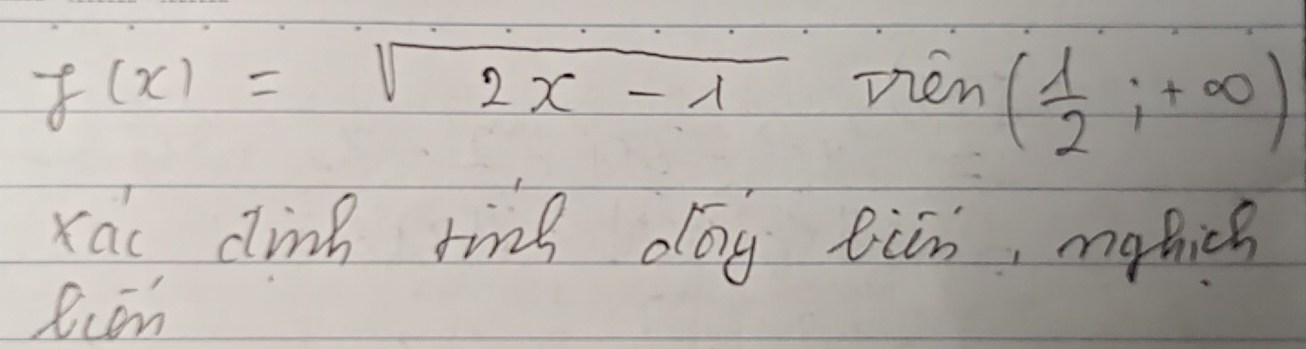 f(x) = √(2x - 1) trên (1/2 ; +∞)
xác định tính đồng biến, nghịch
biến